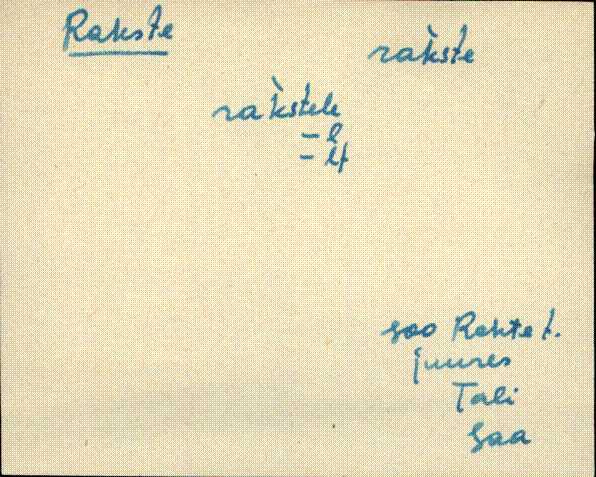 Rakste
ràkšte
ràkštele
– l
– lt
soo Rakste t.
juures
Tali
Saa